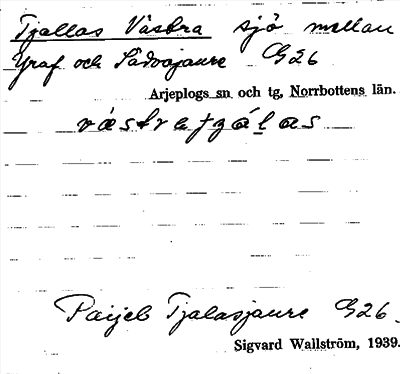 Tjallas Västra sjö mellan
Yraf och Sädvajaure G26
Arjeplogs sn och tg, Norrbottens län.
Paijeb Tjalasjaure G26.
Sigvard Wallström, 1939.